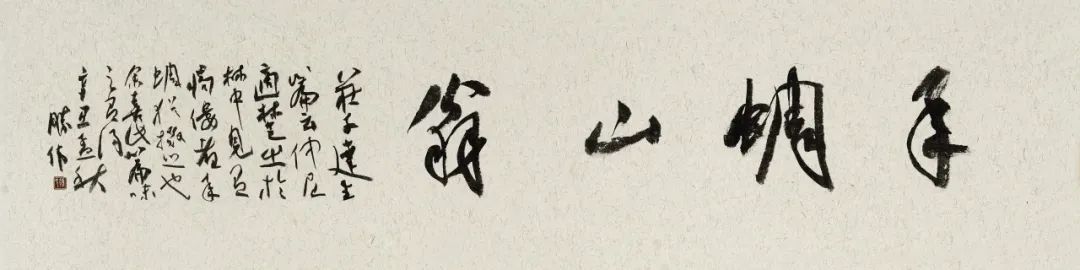 承蜩山翁
莊子達生
篇云仲尼
適楚出於
林中見有
痀僂者承
蜩猶掇之也
余喜此篇味
之
辛丑孟秋